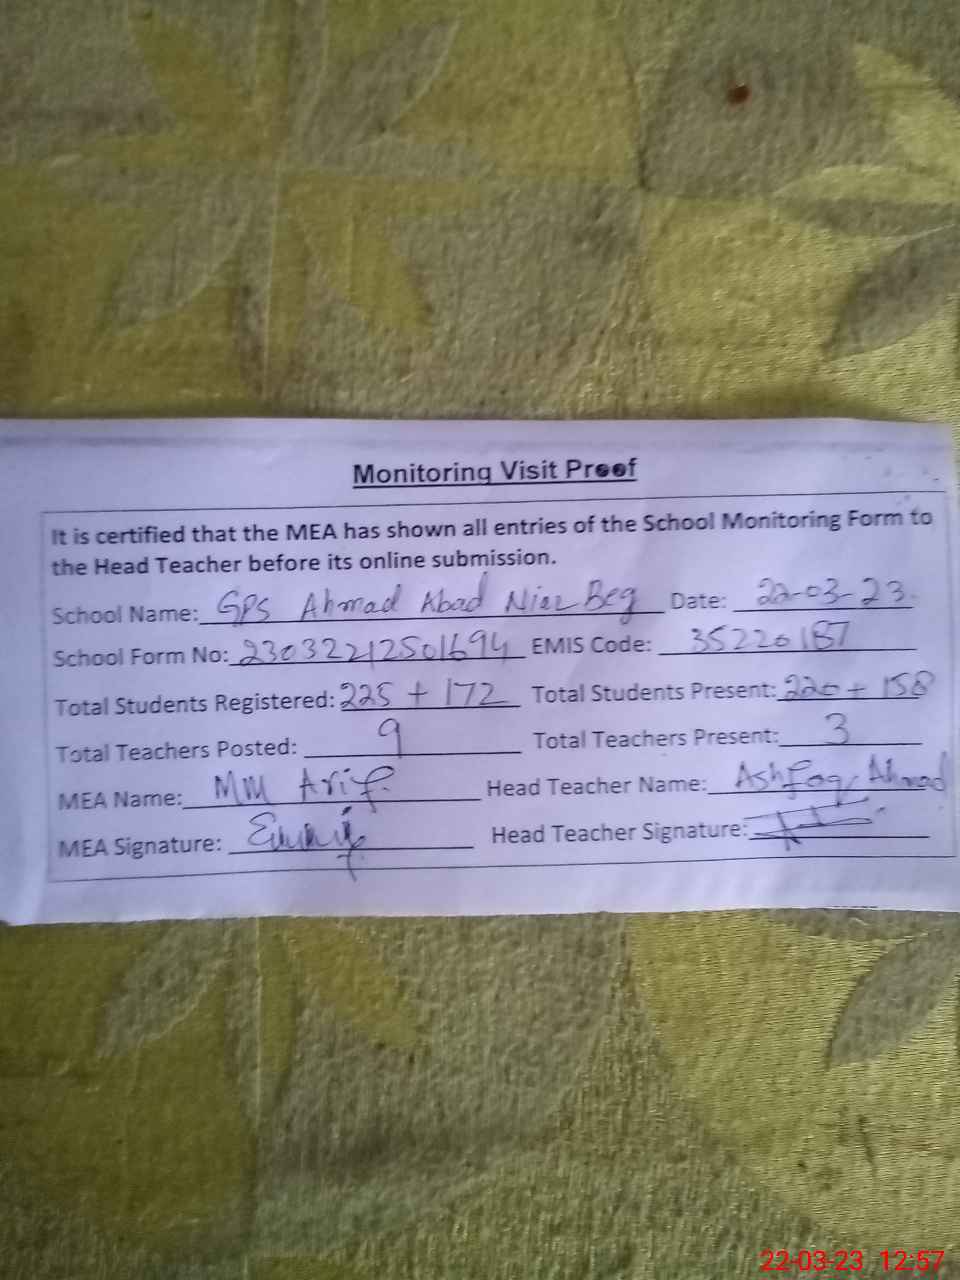 Monitoring Visit Proof
It is certified that the MEA has shown all entries of the School Monitoring Form to
the Head Teacher before its online submission.
School Name: GPS Ahmad Abad Niaz Beg Date: 22-03-23
School Form No: 23032212501694 EMIS Code: 35220187
Total Students Registered: 225 + 172 Total Students Present: 220 + 158
Total Teachers Posted: 9 Total Teachers Present: 3
MEA Name: MM Arif Head Teacher Name: Ashfaq Ahmad
MEA Signature: Head Teacher Signature:
22-03-23 12:57